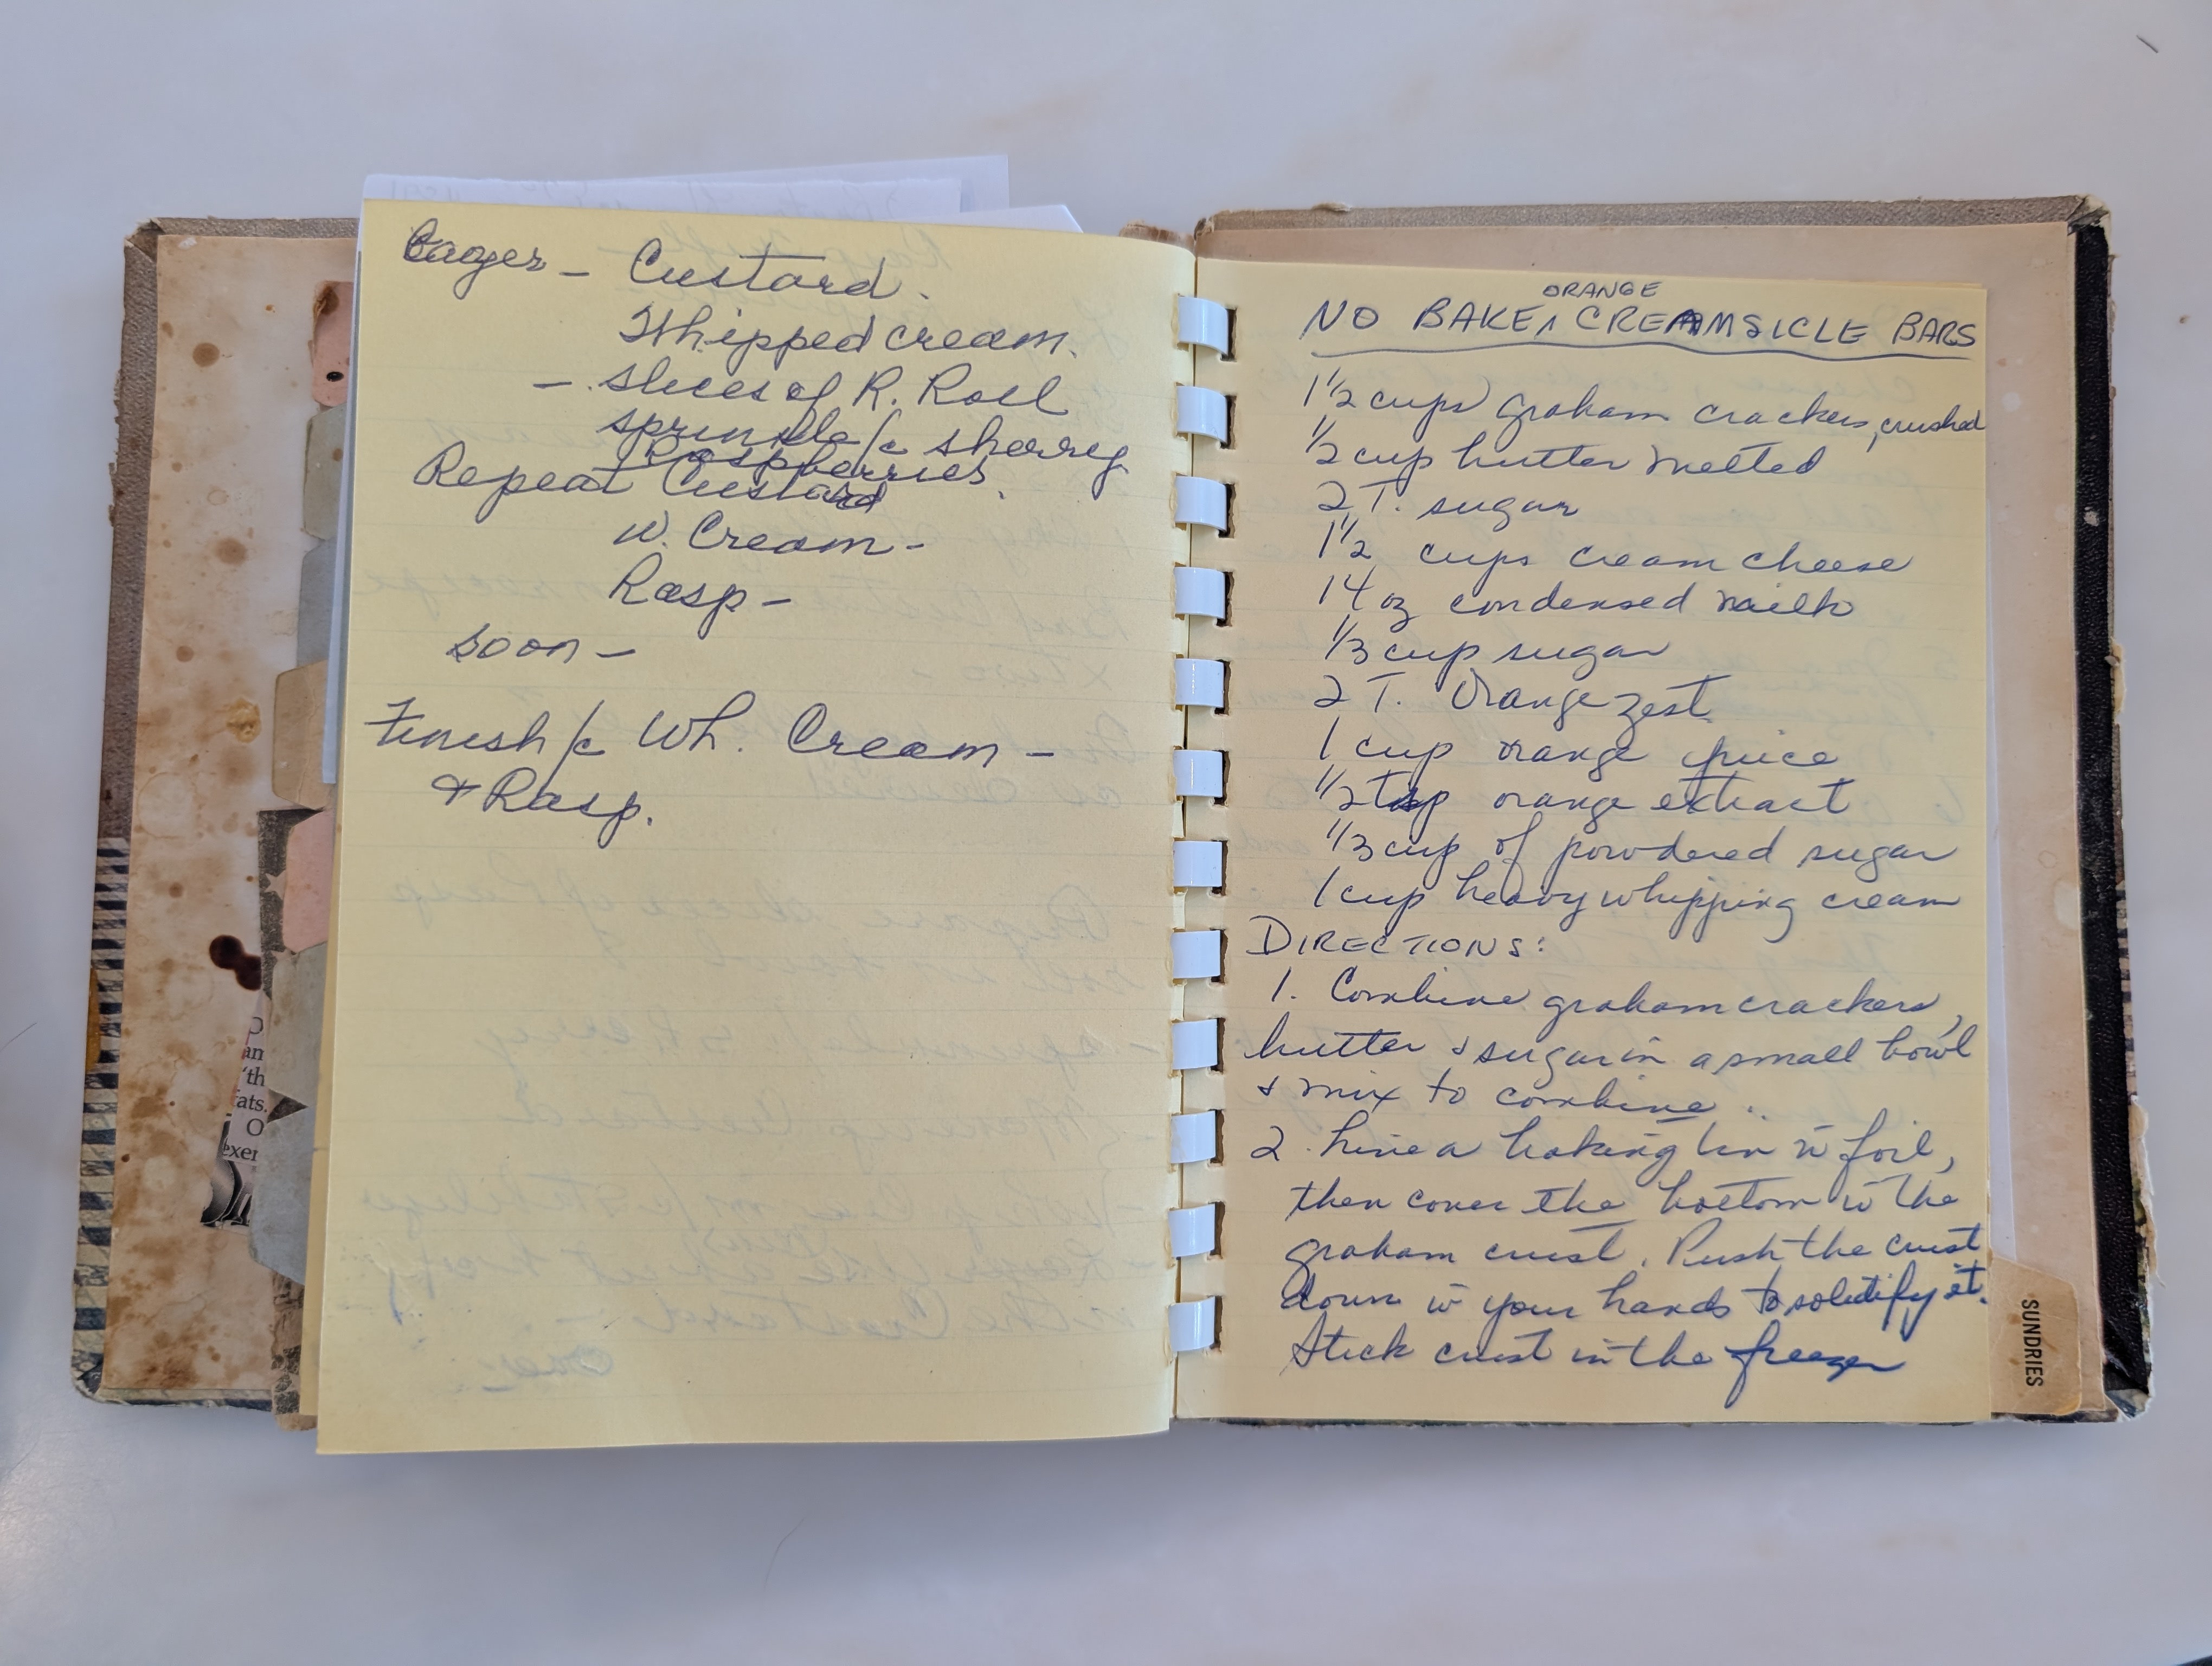 Layer – Custard.
Whipped cream.
– slices of R. Roll
sprinkle /c sherry
Raspberries.
Repeat Custard
W. Cream –
Rasp –
soon –
Finish /c Wh. Cream –
& Rasp.
an
'th
ats.
O
exer
ORANGE
NO BAKE ^ CREAMSICLE BARS
1 1/2 cups graham crackers, crushed
1/2 cup butter melted
2 T. sugar
1 1/2 cups cream cheese
14 oz condensed milk
1/3 cup sugar
2 T. Orange zest
1 cup orange juice
1/2 tsp orange extract
1/3 cup of powdered sugar
1 cup heavy whipping cream
DIRECTIONS:
1. Combine graham crackers,
butter & sugar in a small bowl
& mix to combine.
2. Line a baking tin w̄ foil,
then cover the bottom w̄ the
graham crust. Push the crust
down w̄ your hands to solidify it.
Stick crust in the freezer
SUNDRIES